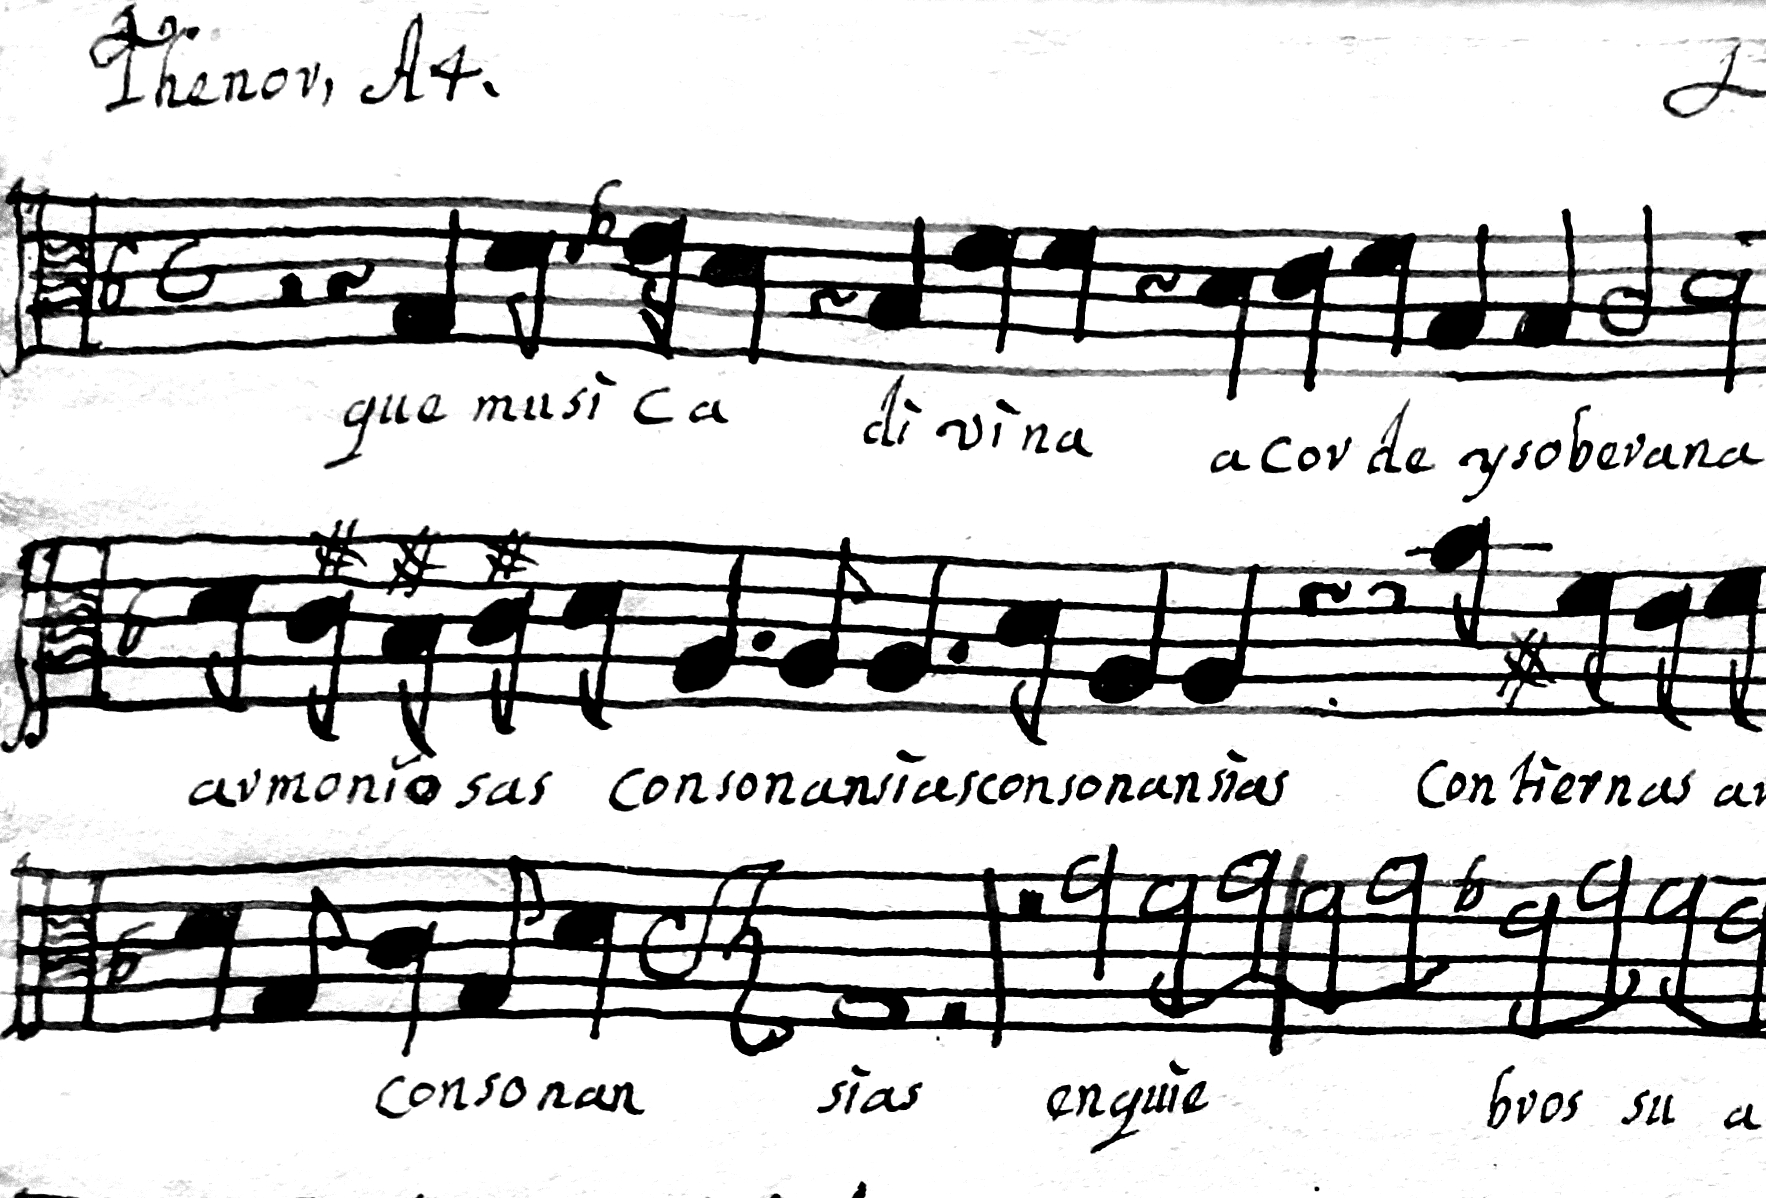 Thenor, A4.
que musica divina acorde y soberana
armoniosas consonansias consonansias con tiernas
consonansias enquiebros su a